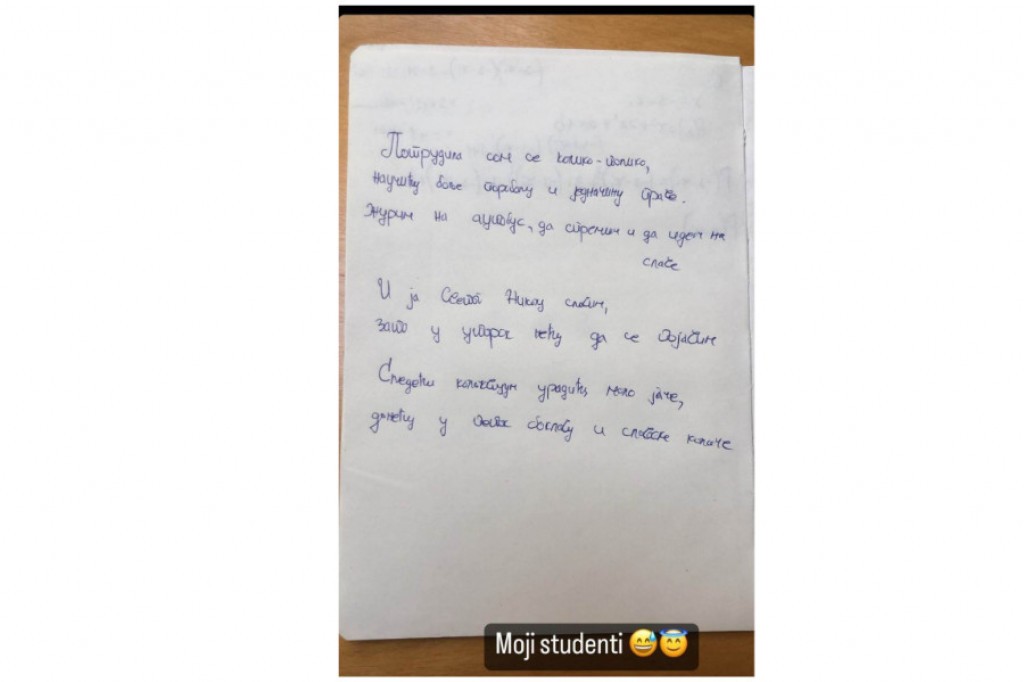 Потрудила сам се колико-толико,
научићу боље параболу и једначину праве.
Журим на аутобус, да спремим и да идем на
славе
И ја Светог Николу славим,
зато у уторак нећу да се појавим
Следећи колоквијум урадићу мало јаче,
донећу у петак баклаву и славске колаче
Moji studenti 😅😇